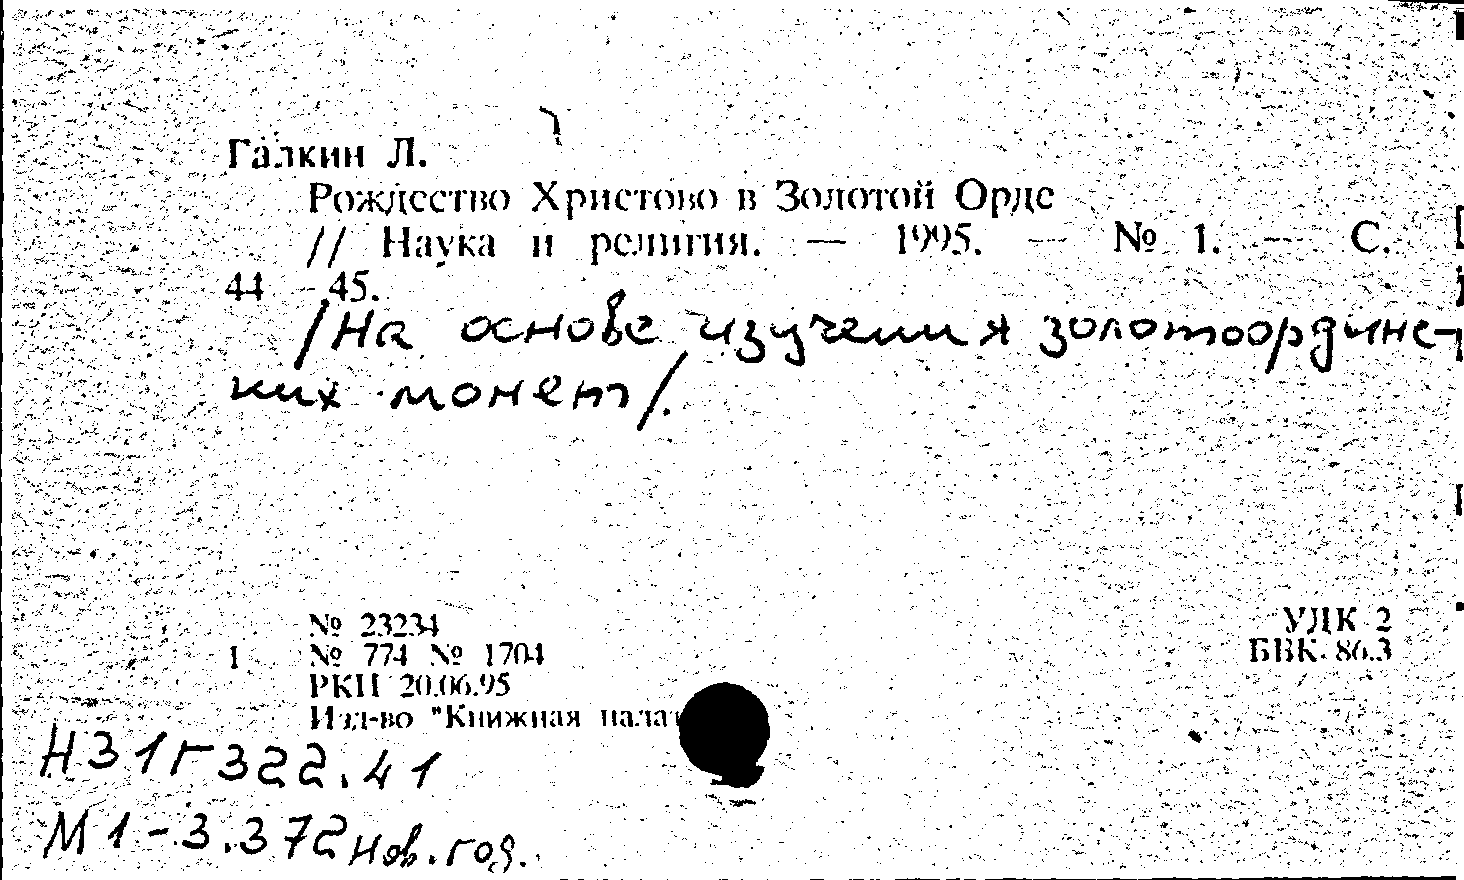 Галкин Л.
Рождество Христово в Золотой Орде
// Наука и религия. — 1995. — № 1. — С.
44 - 45.
/На основе изучения золотоордынс-
ких монет/.
№ 23234
1 № 774 № 1704
РКП 20.06.95
Изд-во "Книжная палат
УДК 2
ББК 86.3
Н31г322.41
М1-3.372 нов. год.